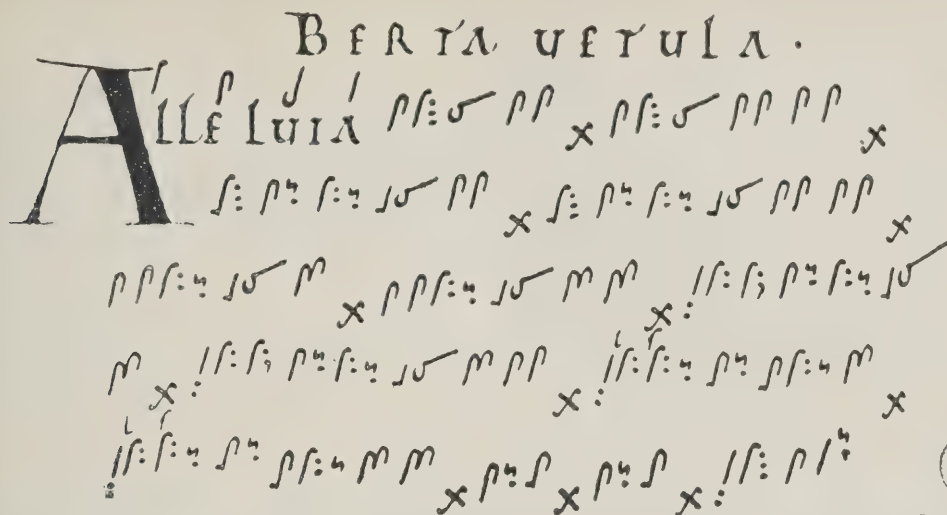 BERTA UETULA.
ALLELUIA